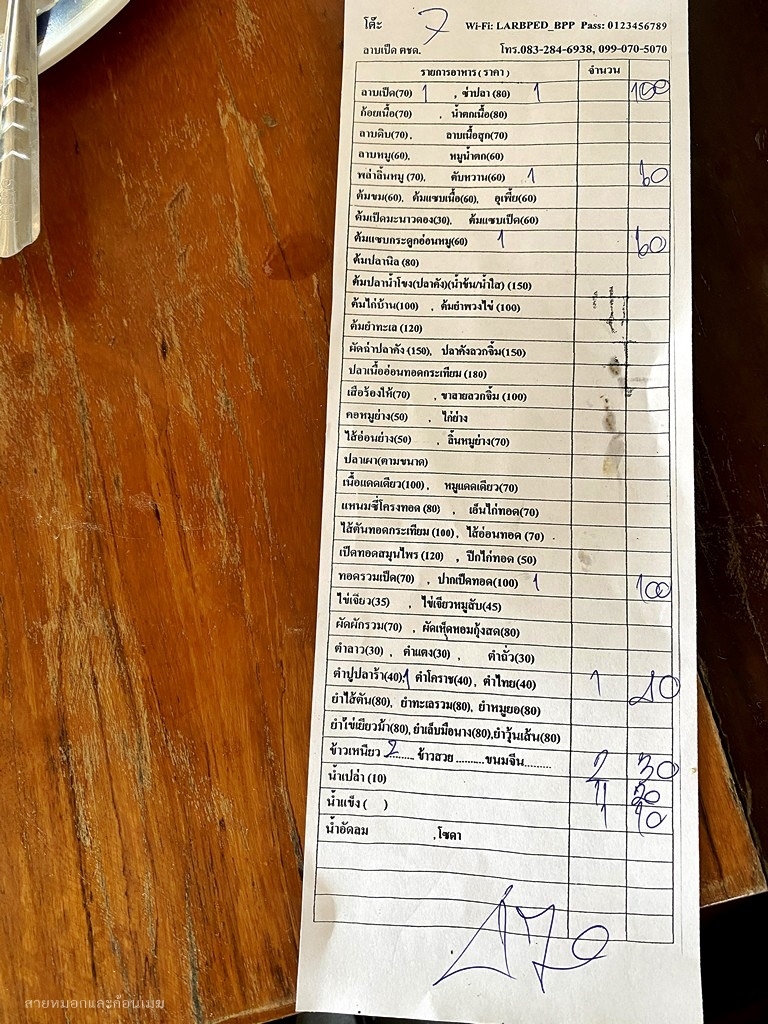 โต๊ะ 7 Wi-Fi: LARBPED_BPP Pass: 0123456789
ลาบเป็ด ตชด. โทร.083-284-6938, 099-070-5070
รายการอาหาร ( ราคา ) จำนวน
ลาบเป็ด(70) 1 , ซ่าปลา (80) 1
ก้อยเนื้อ(70) , น้ำตกเนื้อ(80)
ลาบดิบ(70), ลาบเนื้อสุก(70)
ลาบหมู(60), หมูน้ำตก(60)
พล่าลิ้นหมู (70), ตับหวาน(60) 1 60
ต้มขม(60), ต้มแซบเนื้อ(60), อุเพี้ย(60)
ต้มเป็ดมะนาวดอง(30), ต้มแซบเป็ด(60)
ต้มแซบกระดูกอ่อนหมู(60) 1 60
ต้มปลานิล (80)
ต้มปลาน้ำโขง(ปลาคัง)(น้ำข้น/น้ำใส) (150)
ต้มไก่บ้าน(100) , ต้มยำพวงไข่ (100)
ต้มยำทะเล (120)
ผัดฉ่าปลาคัง (150), ปลาคังลวกจิ้ม(150)
ปลาเนื้ออ่อนทอดกระเทียม (180)
เสือร้องไห้(70) , ขาลายลวกจิ้ม (100)
คอหมูย่าง(50) , ไก่ย่าง
ไส้อ่อนย่าง(50) , ลิ้นหมูย่าง(70)
ปลาเผา(ตามขนาด)
เนื้อแดดเดียว(100), หมูแดดเดียว(70)
แหนมซี่โครงทอด (80) , เอ็นไก่ทอด(70)
ไส้ตันทอดกระเทียม (100), ไส้อ่อนทอด (70)
เป็ดทอดสมุนไพร (120) , ปีกไก่ทอด (50)
ทอดรวมเป็ด(70) , ปากเป็ดทอด(100) 1 100
ไข่เจียว(35) , ไข่เจียวหมูสับ(45)
ผัดผักรวม(70) , ผัดเห็ดหอมกุ้งสด(80)
ตำลาว(30) , ตำแตง(30) , ตำถั่ว(30)
ตำปูปลาร้า(40),1 ตำโคราช(40), ตำไทย(40) 1 40
ยำไส้ตัน(80), ยำทะเลรวม(80), ยำหมูยอ(80)
ยำไข่เยี่ยวม้า(80), ยำเล็บมือนาง(80),ยำวุ้นเส้น(80)
ข้าวเหนียว 2 ข้าวสวย ......... ขนมจีน......... 2 30
น้ำเปล่า (10)
น้ำแข็ง ( ) 1 10
น้ำอัดลม , โซดา
470
สายหมอกและก้อนเมฆ